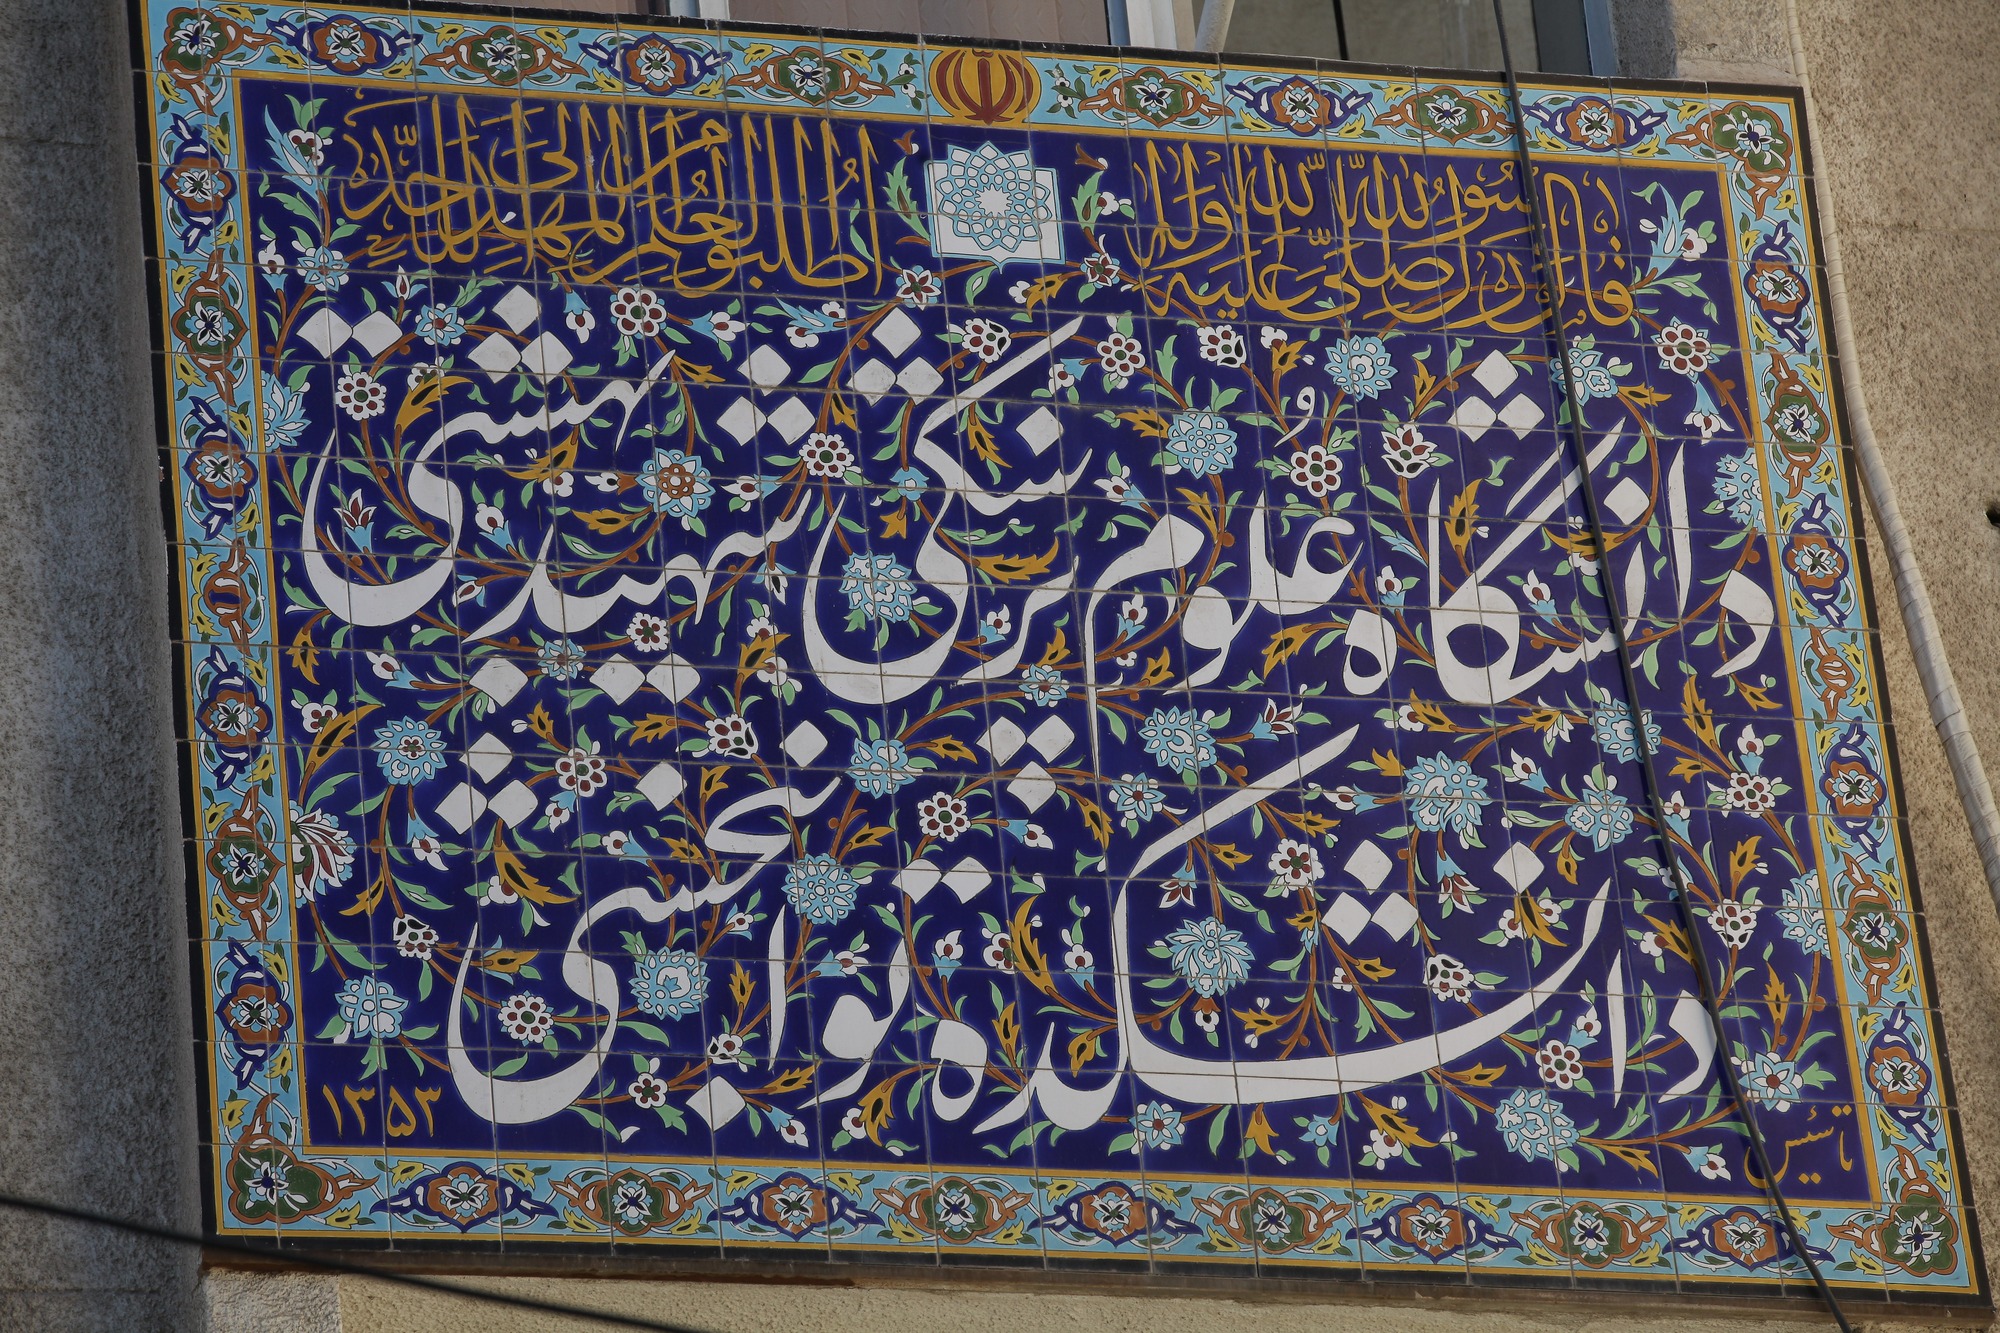 قال رسول الله صلی الله علیه و آله
اطلبوا العلم من المهد الی اللحد
دانشگاه علوم پزشکی و
شهید بهشتی
دانشکده توانبخشی
تأسیس ۱۳۵۳